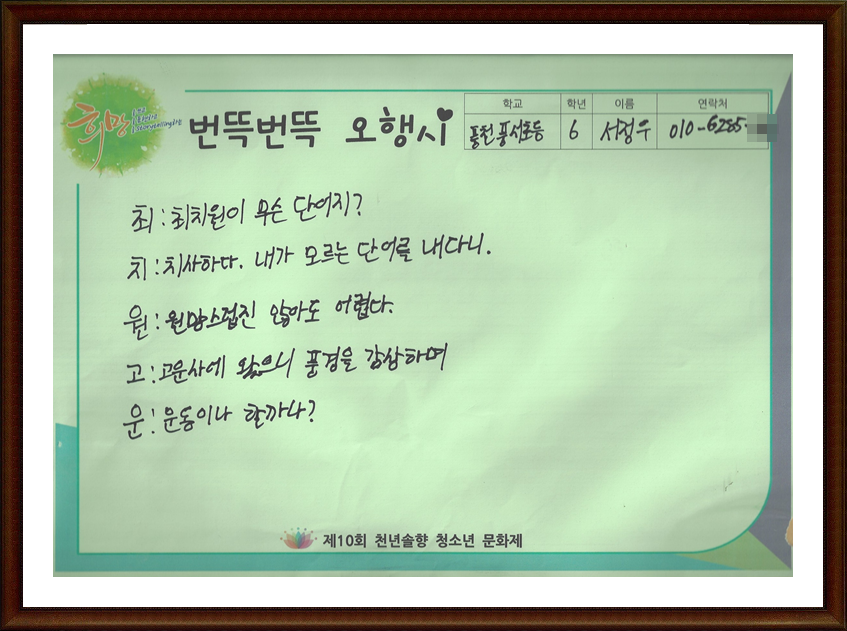 희망
번뜩번뜩 오행시
학교 학년 이름 연락처
풍천풍서초등 6 서정우 010-6285-
최:최치원이 무슨 단어지?
치:치사하다. 내가 모르는 단어를 내다니.
원:원망스럽진 않아도 어렵다.
고:고운사에 왔으니 풍경을 감상하며
운:운동이나 할까나?
제10회 천년솔향 청소년 문화제